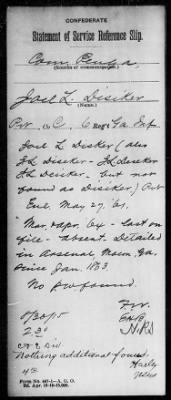 CONFEDERATE
Statement of Service Reference Slip.
Com. Penga
(Source of communication.)
Joel L Disiker
(Name.)
Pvt, Co. C, 6 Reg't Ga Inf.
Joel L. Disker (also
J L Disker - J L
J L - but not
found as Disiker) Pvt
Enl. May 27, 61.
Mar & Apr. 64 - last on
file - absent. Detailed
in Arsenal Macon, Ga.
since Jan. 1863
No pw found.
2 30
Nothing additional found.
Form No. 447-1—A. G. O.